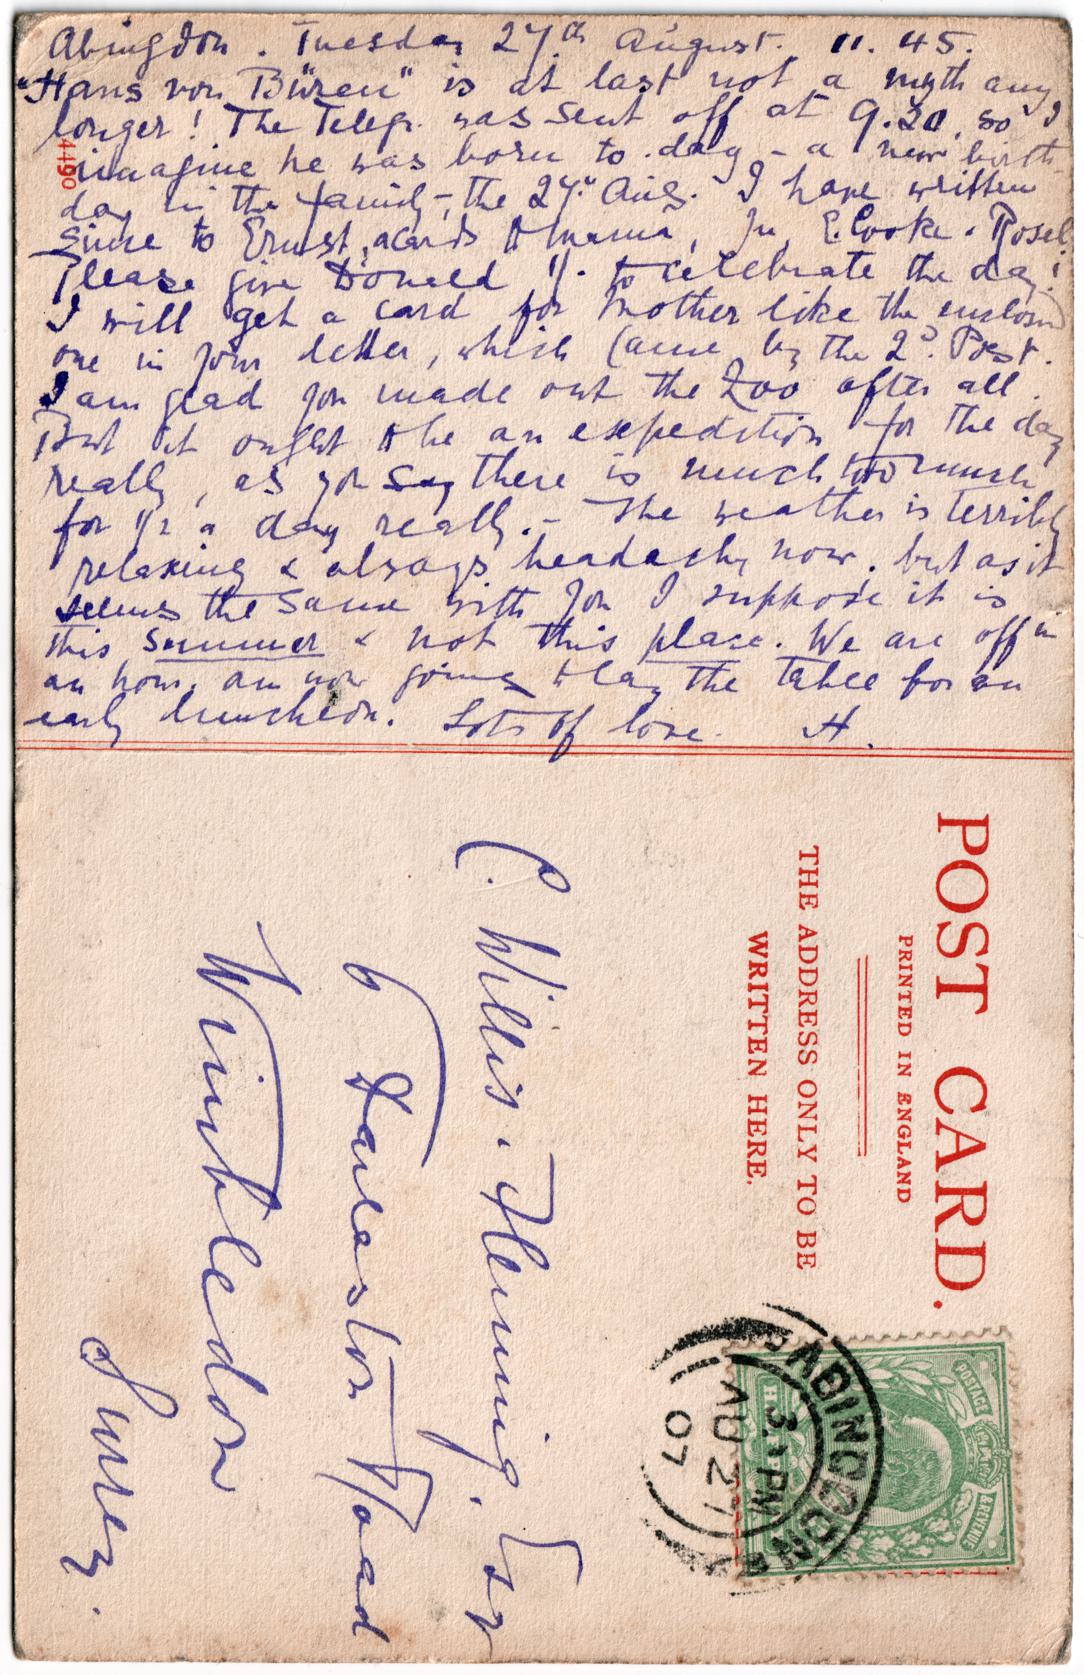 Abingdon. Tuesday 27th August. 11.45.
"Hans von Büren" is at last not a myth any
longer! The Telegr. was sent off at 9.20, so I
imagine he was born to.day - a new birth
day in the family -, the 27th Aug. I have written
since to Ernst, &cards to mama, E. Cooke. Rosel
Please give Donald 1/- to celebrate the day!
I will get a card for Mother like the enclosed
one in your letter, which came by the 2d. Post.
I am glad you made out the Zoo after all.
But it ought to be an expedition for the day
really, as you say there is much too much
for 1/2 a day really. - The weather is terribly
relaxing & always headachy now. but as it
seems the same with you I suppose it is
this summer & not this place. We are off in
an hour. am now going to lay the table for an
early luncheon. Lots of love. H.
4490
POST CARD.
PRINTED IN ENGLAND
THE ADDRESS ONLY TO BE
WRITTEN HERE.
C. Willis. Fleming. Esq
6 Road
Wimbledon
Surrey.
ABINGDON
3 PM
AU 27
07
POSTAGE
& REVENUE